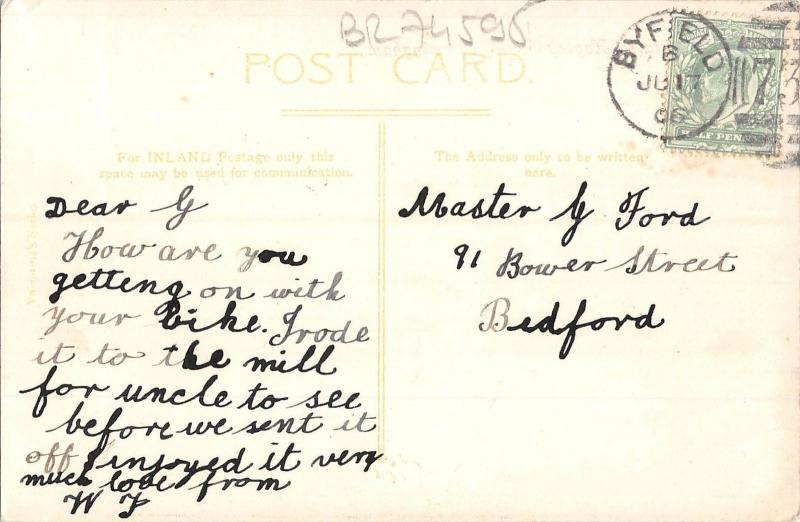 BR74596
POST CARD.
BYFIELD
B
JU 17
06
HALF PENNY
For INLAND Postage only this
space may be used for communication.
The Address only to be written
here.
Dear G
How are you
getteng on with
your Bike. I rode
it to the mill
for uncle to see
before we sent it
off & injoyed it very
much love from
W F
Master G Ford
91 Bower Street
Bedford